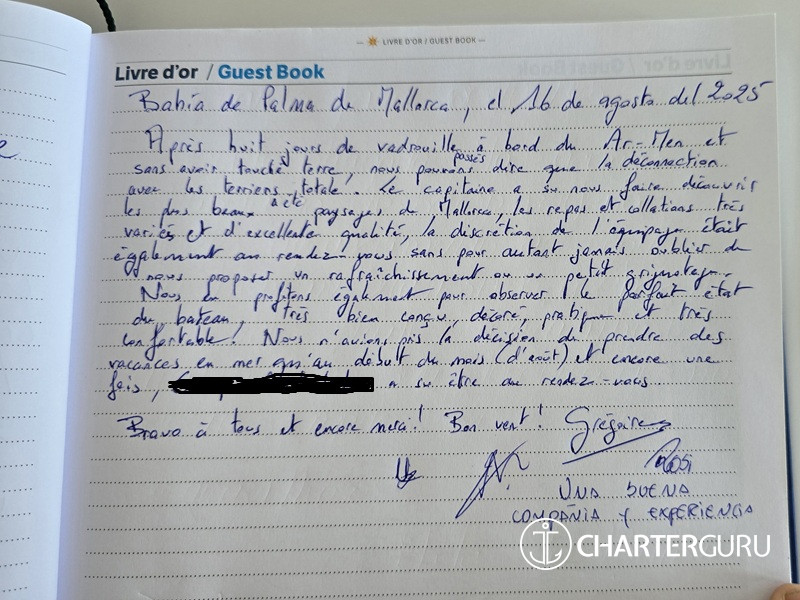 LIVRE D'OR / GUEST BOOK
Livre d'or / Guest Book
Bahía de Palma de Mallorca, el 16 de agosto del 2025
Après huit jours de vadrouille à bord du Ar-Men et
sans avoir touché terre, nous pouvons dire que la déconnection
passés
avec les terriens totale. Le capitaine a su nous faire découvrir
a été
les plus beaux paysages de Mallorca, les repas et collations très
variés et d'excellente qualité, la discrétion de l'équipage était
également au rendez-vous sans pour autant jamais oublier de
nous proposer un rafraîchissement ou un petit grignotage.
Nous en profitons également pour observer le parfait état
du bateau, très bien conçu, décoré, pratique et très
confortable. Nous n'avions pris la décision de prendre des
vacances en mer qu'au début du mois (d'août) et encore une
fois, a su être au rendez-vous.
Bravo à tous et encore merci! Bon vent! Grégoire
UNA BUENA
COMPAÑIA Y EXPERIENCIA
CHARTERGURU